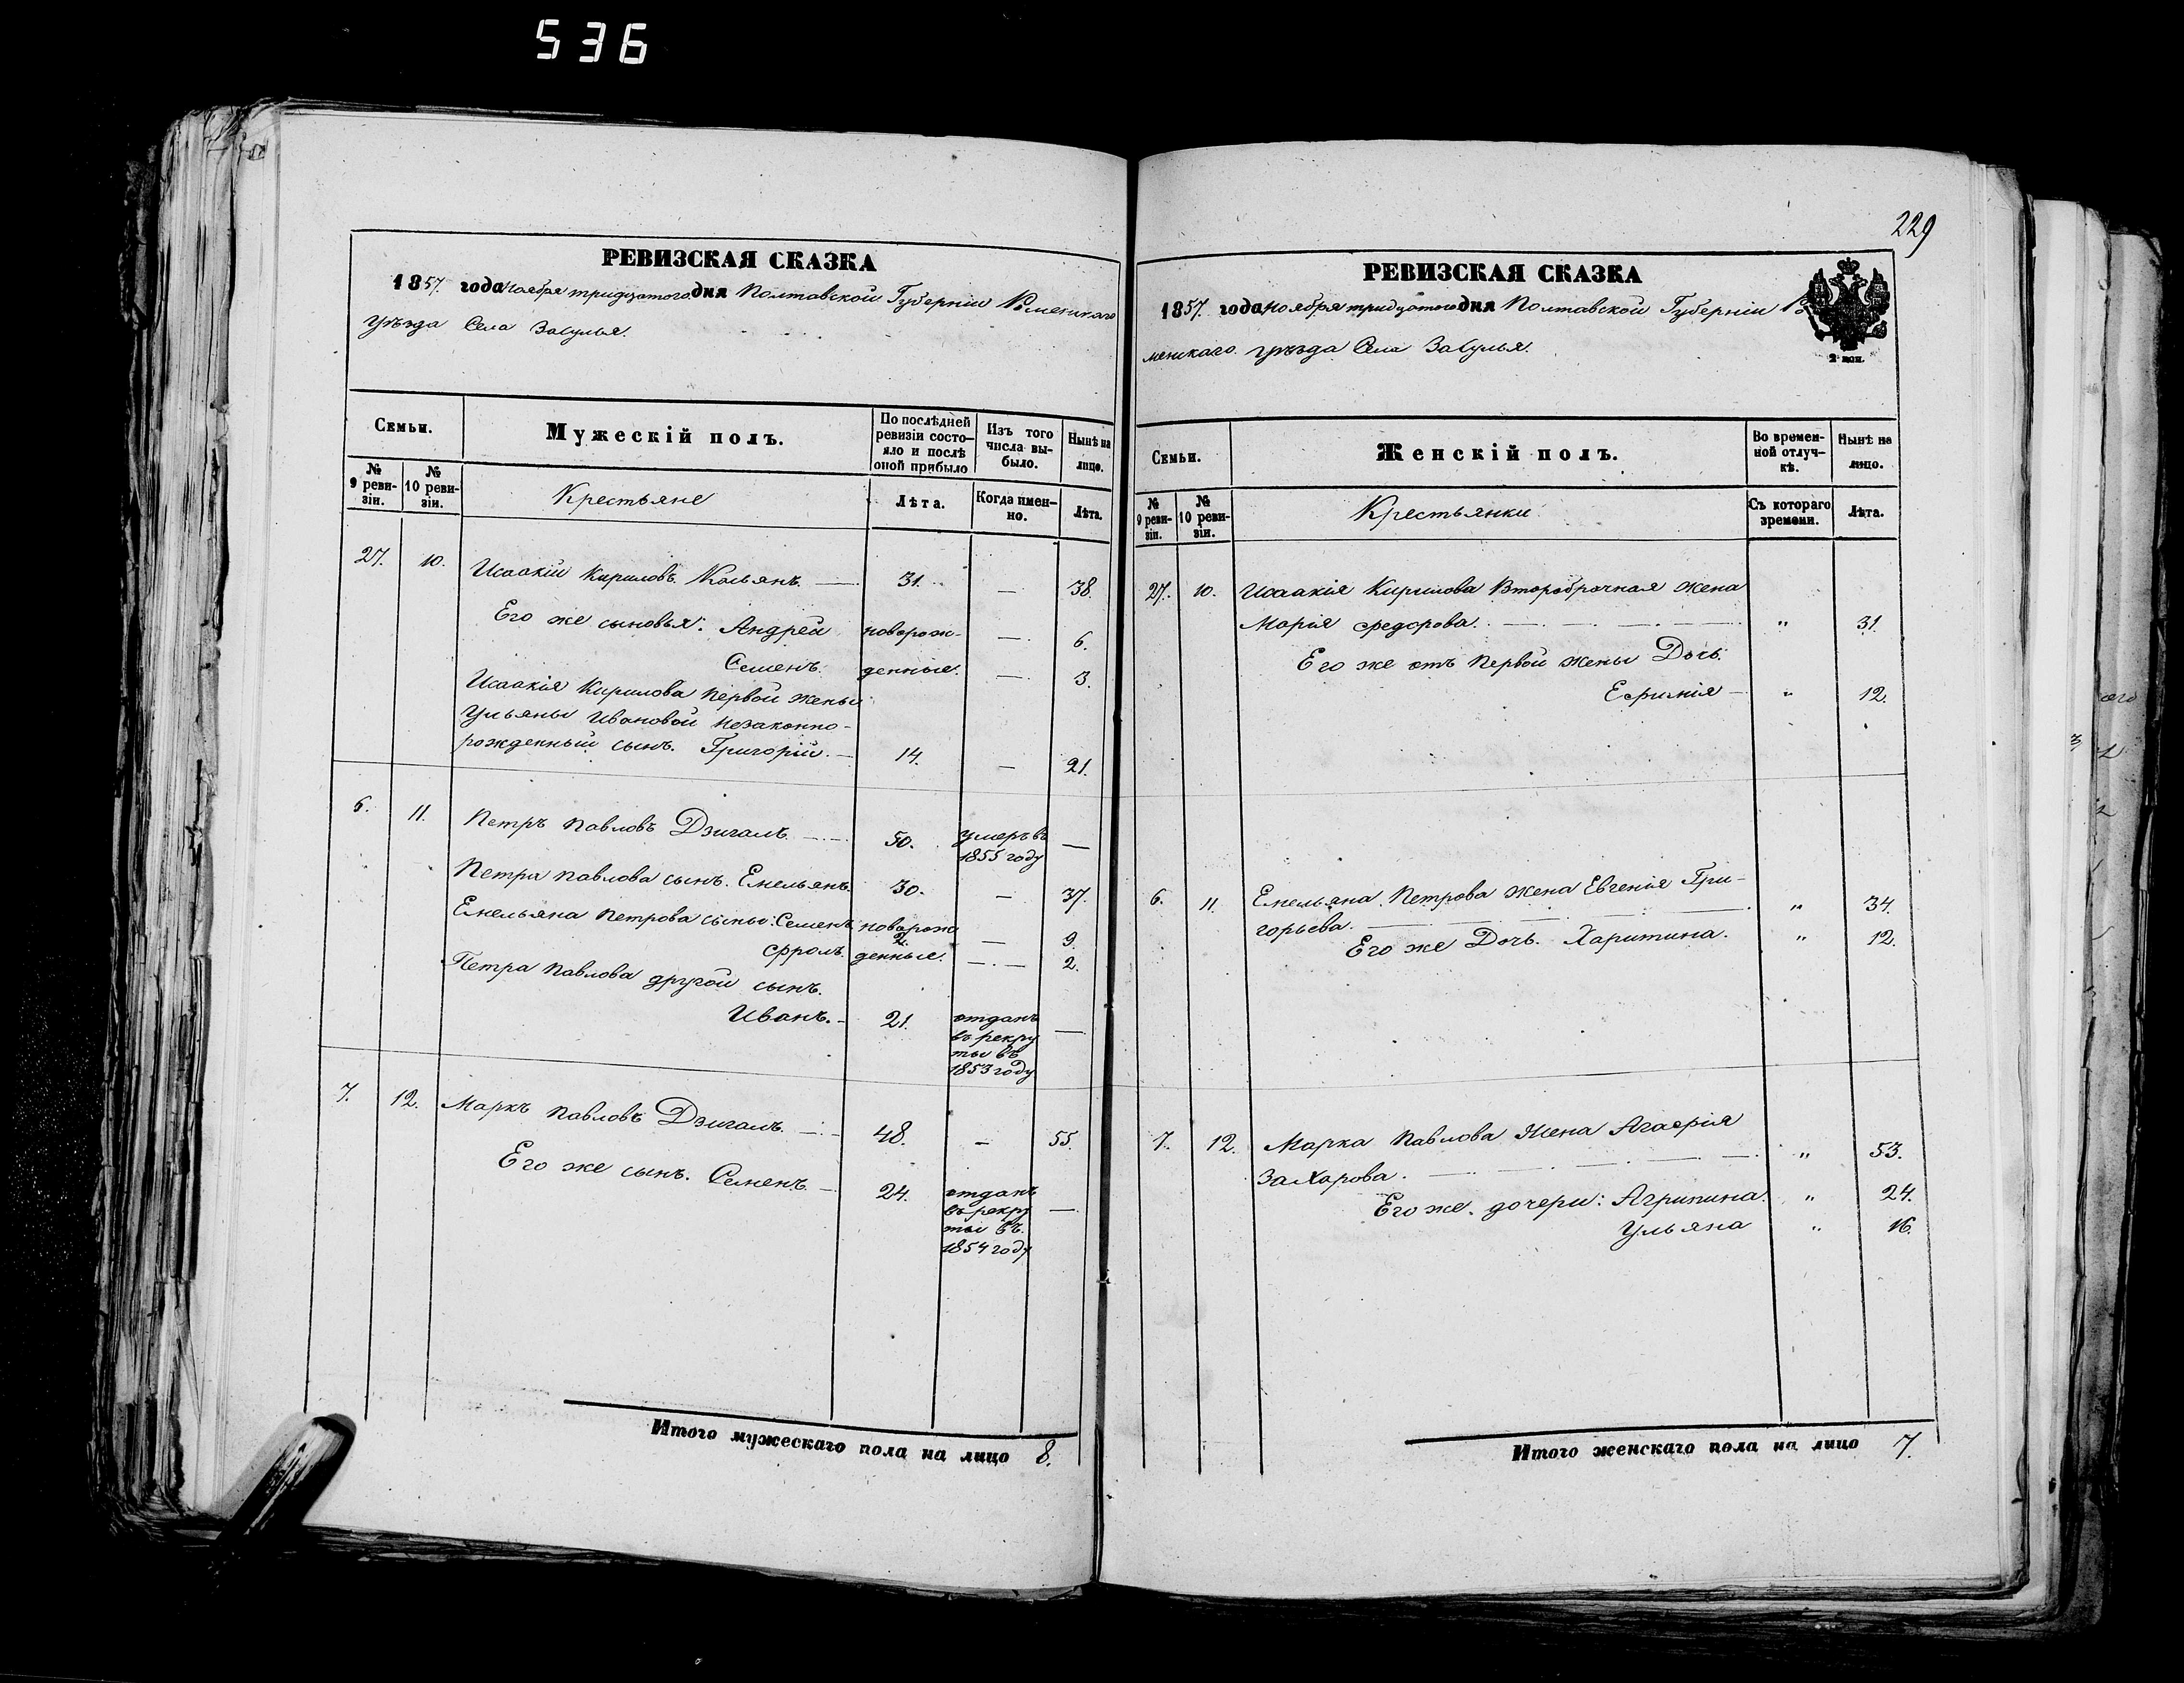 536
РЕВИЗСКАЯ СКАЗКА
1857. года ноября тридцатого дня Полтавской Губерніи Роменскаго
уѣзда Села Засулья.
Семьи.
Мужескій полъ.
По послѣдней ревизіи состояло и послѣ оной прибыло
Изъ того числа выбыло.
Нынѣ на лицо.
№ 9 ревизіи.
№ 10 ревизіи.
Крестьяне
Лѣта.
Когда именно.
Лѣта.
27. 10. Исаакій Кириловъ Касьянъ. — 31. — 38.
Его же сыновья: Андрей новорож- — 6.
Семенъ. денные. — 3.
Исаакія Кирилова первой жены
Ульяны Ивановой незаконно-
рожденный сынъ. Григорій. — 14. — 21.
6. 11. Петръ Павловъ Дзигалъ. — 50. умеръ въ —
1855 году
Петра Павлова сынъ. Емельянъ. 30. — 37.
Емельяна Петрова сыны: Семенъ новорож 2. — 9.
Фролъ. денные. — 2.
Петра Павлова другой сынъ.
Иванъ. — 21. отданъ —
въ рекру
ты въ
1853 году
7. 12. Маркъ Павловъ Дзигалъ. — 48. — 55.
Его же сынъ. Семенъ. — 24. отданъ —
въ рекру
ты въ.
1854 году
Итого мужескаго пола на лицо 8.
229
РЕВИЗСКАЯ СКАЗКА
1857. года ноября тридцатого дня Полтавской Губерніи Ро
менскаго уѣзда Села Засулья.
2 коп.
Семьи.
Женскій полъ.
Во временной отлучкѣ.
Нынѣ на лицо.
№ 9 ревизіи.
№ 10 ревизіи.
Крестьянки
Съ котораго времени.
Лѣта.
27. 10. Исаакія Кирилова Второбрачная жена
Марія Федорова. — " 31.
Его же отъ Первой жены Дочь.
Ефимія — " 12.
6. 11. Емельяна Петрова жена Евгенія Гри-
горьева. — " 34.
Его же Дочь. Харитина. " 12.
7. 12. Марка Павлова Жена Агафія
Захарова. — " 53.
Его же. дочери: Агрипина. " 24.
Ульяна " 16.
Итого женскаго пола на лицо 7.